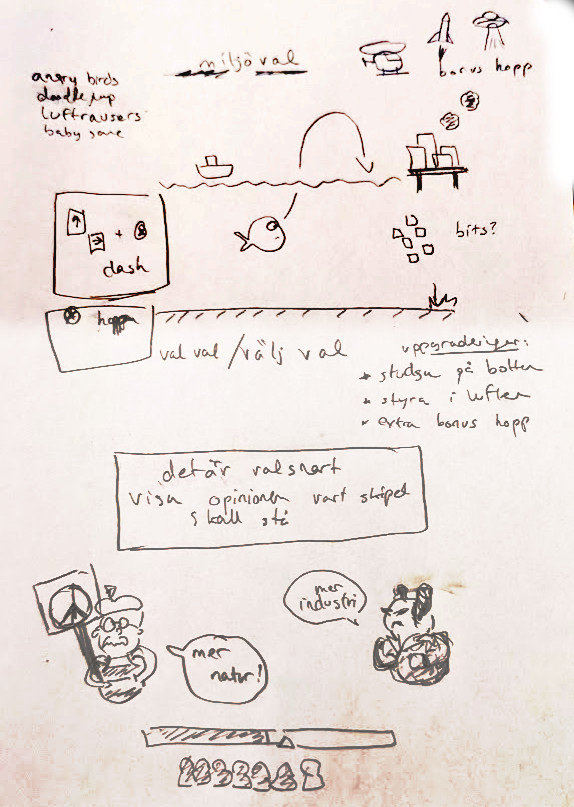 miljöval
bonus hopp
angry birds
doodle jump
luftrausers
baby sane
bits?
+
dash
hoppa
val val / välj val
uppgraderingar:
* studsa på botten
* styra i luften
* extra bonus hopp
det är val snart
visa opinionen vart skåpet
skall stå
mer
industri
mer
natur!